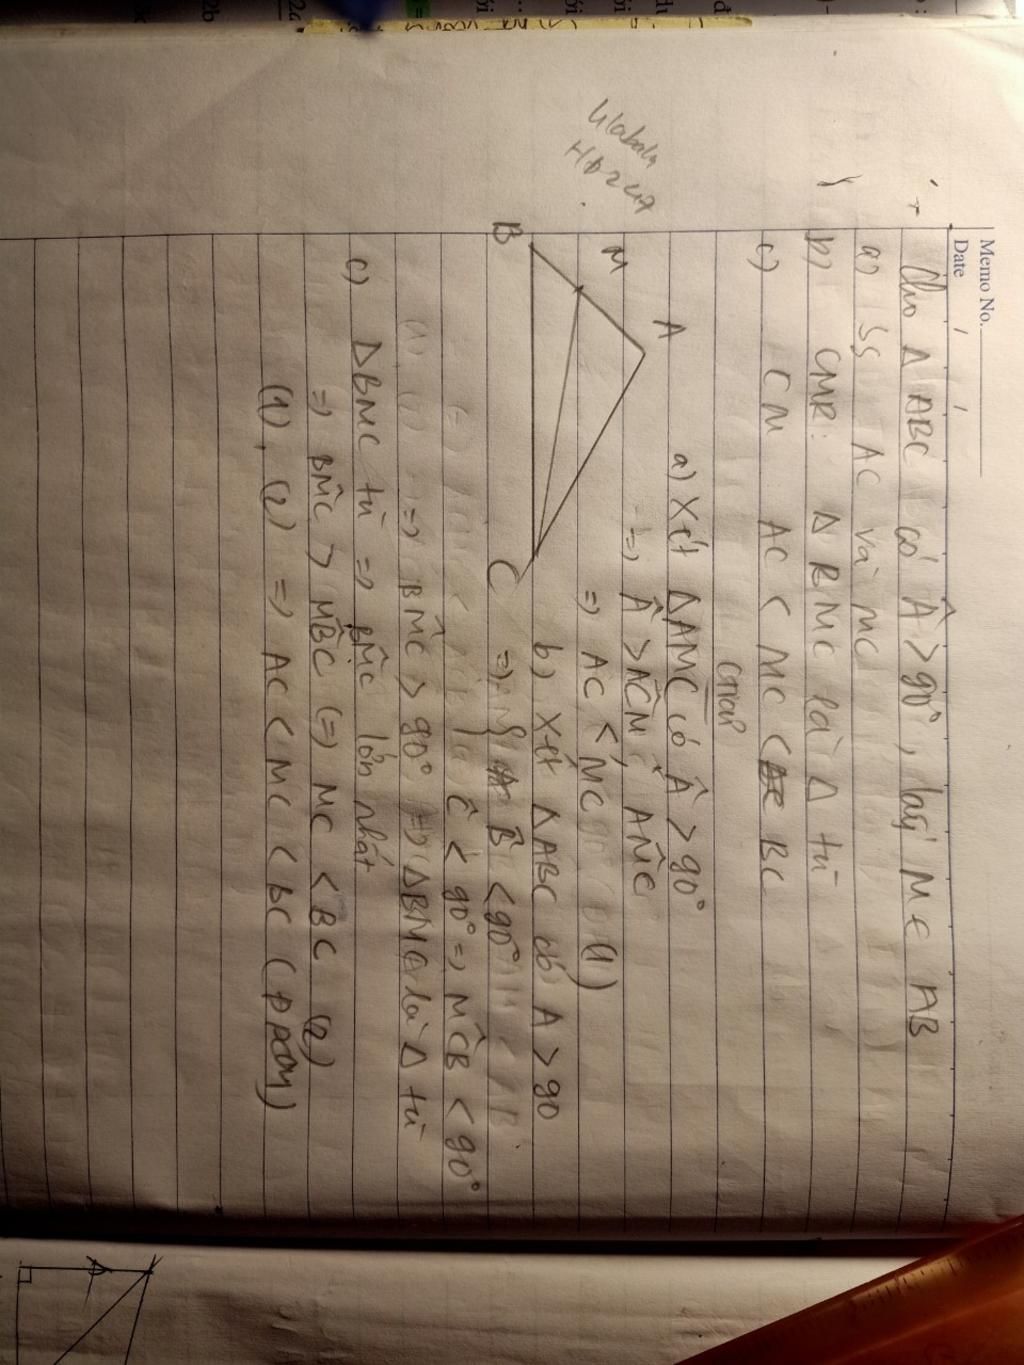 Memo No.
Date / /
Cho Δ ABC có Â > 90°, lấy M ∈ AB
a) SS AC và MC
b) CMR: Δ BMC là Δ tù
c) CM AC < MC < BC
Giải
A
M
B
C
a) Xét ΔAMC có Â > 90°
=> Â > AĈM, AM̂C
=> AC < MC (1)
b) Xét ΔABC có A > 90
=> B̂ < 90°
Ĉ < 90° => MĈB < 90°
=> BM̂C > 90° => ΔBMC là Δ tù
c) ΔBMC tù => BM̂C lớn nhất
=> BM̂C > MB̂C (=) MC < BC (2)
(1), (2) => AC < MC < BC (đpcm)